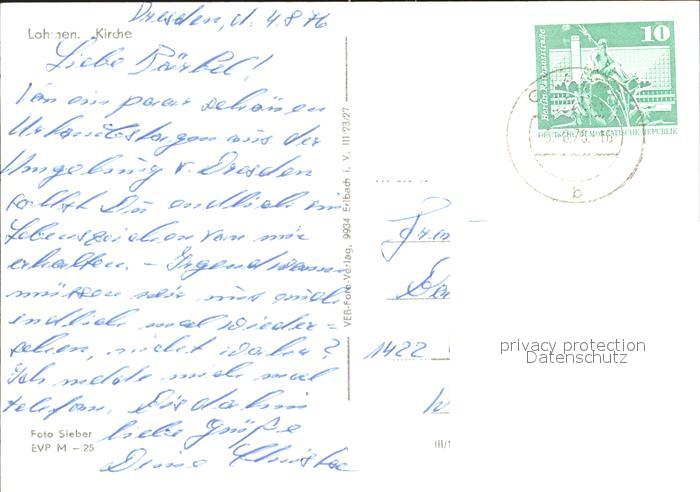 Dresden, d. 4.8.76
Lohmen. Kirche
Liebe Bärbel!
Von ein paar schönen
Urlaubstagen aus der
Umgebung v. Dresden
sollst Du endlich ein
Lebenszeichen von mir
erhalten. – Irgendwann
müssen wir uns auch
endlich mal wieder=
sehen, nicht wahr?
Ich melde mich mal
telefon. Bis dahin
liebe Grüße
Deine
Foto Sieber
EVP M –.25
VEB-Foto-Verlag, 9934 Erlbach i. V. III/23/27
10
Berlin Rathausstraße
DEUTSCHE DEMOKRATISCHE REPUBLIK
b
1422
III/1
privacy protection
Datenschutz